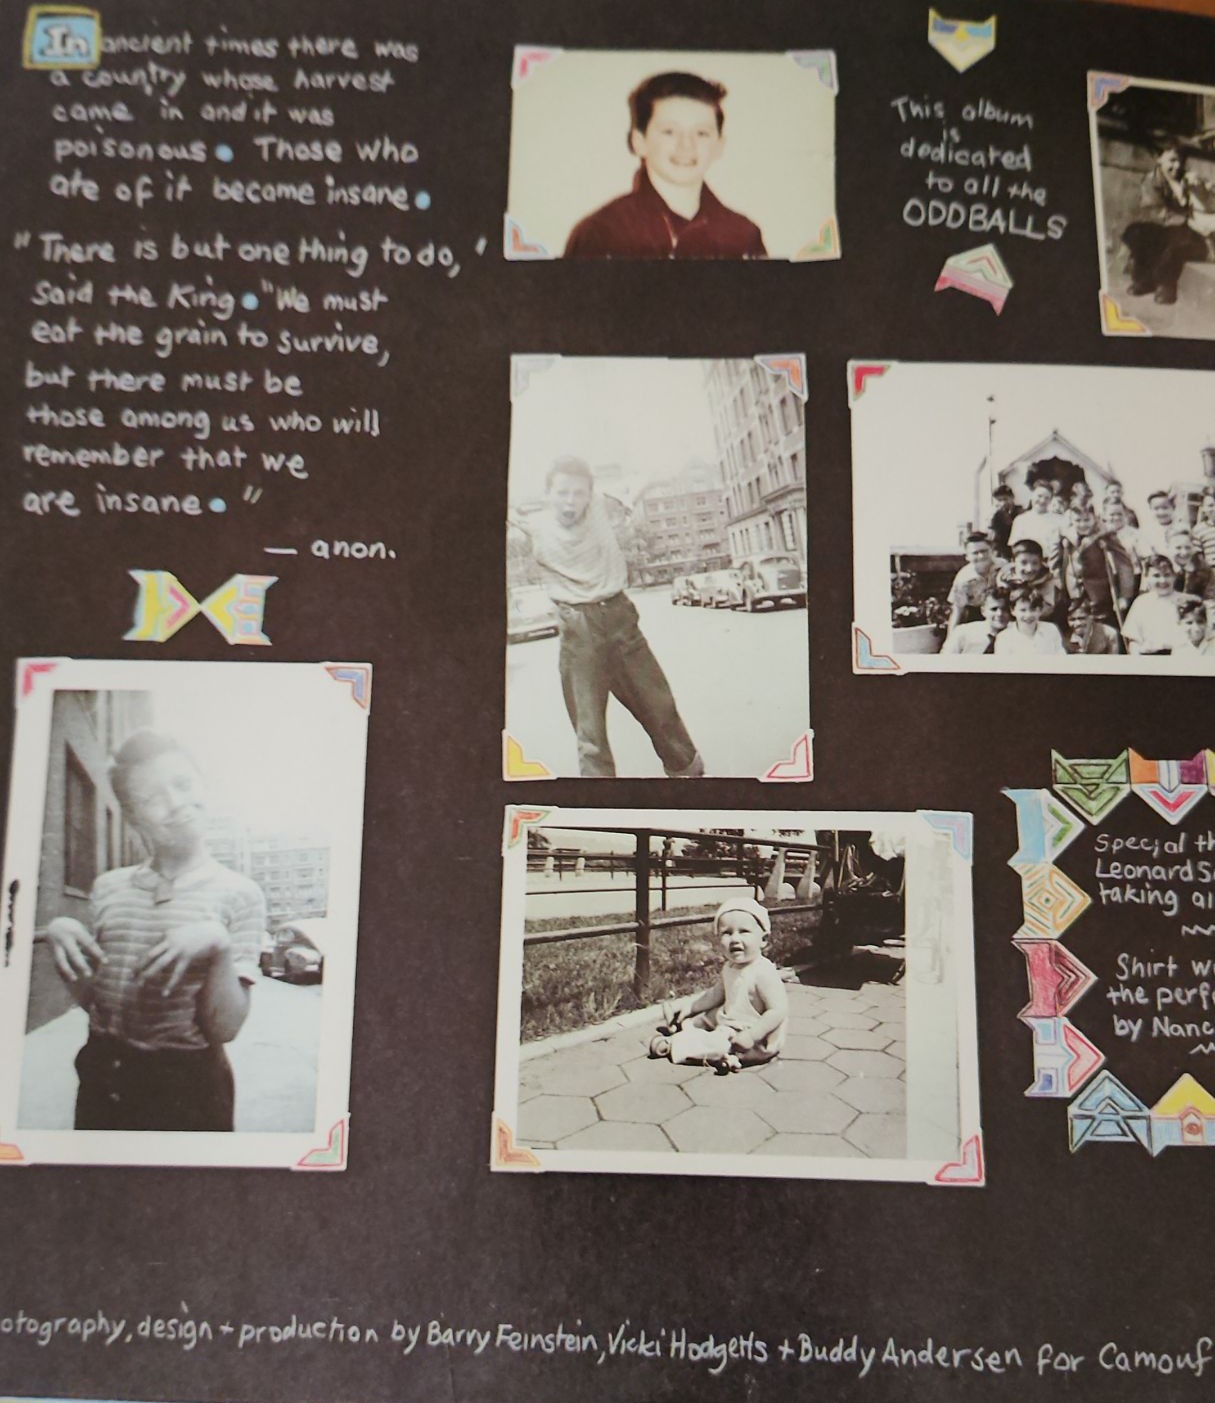 In ancient times there was
a country whose harvest
came in and it was
poisonous. Those who
ate of it became insane.
"There is but one thing to do,"
said the King. "We must
eat the grain to survive,
but there must be
those among us who will
remember that we
are insane."
— anon.
This album
is
dedicated
to all the
ODDBALLS
Special th
Leonard S
taking al
Shirt w
the perf
by Nanc
otography, design + production by Barry Feinstein, Vicki Hodgetts + Buddy Andersen for Camouf